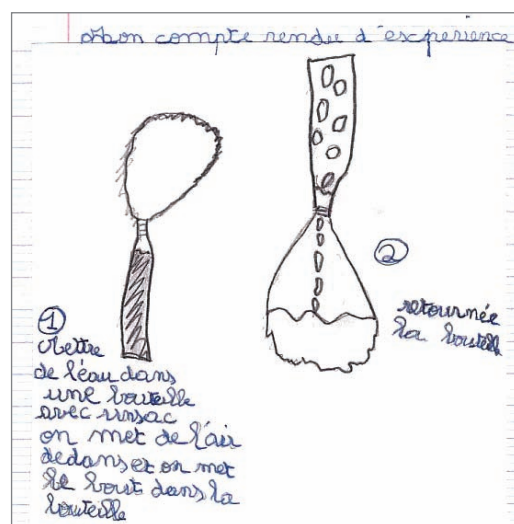 Mon compte rendu d'experience
①
Mettre
de l'eau dans
une bouteille
avec un sac
on met de l'air
dedans et on met
le bout dans la
bouteille
②
retournée
la bouteille